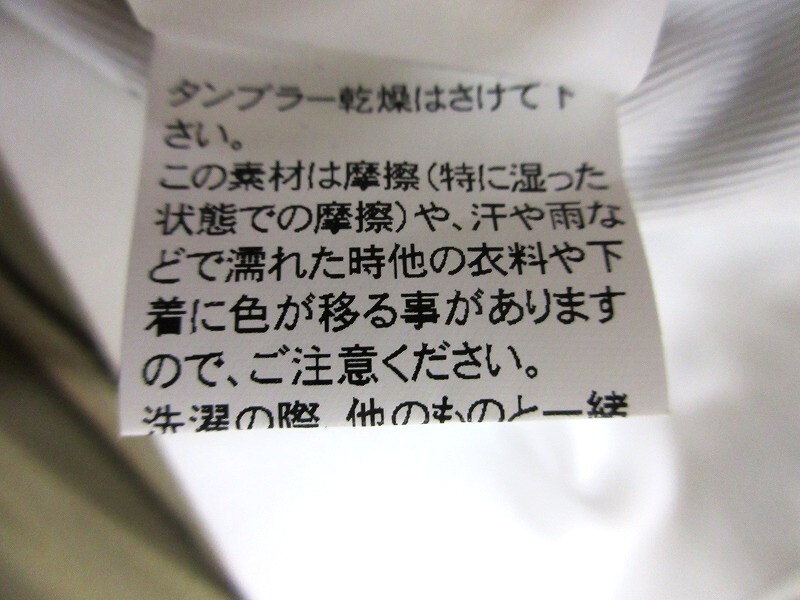 タンブラー乾燥はさけて下
さい。
この素材は摩擦(特に湿った
状態での摩擦)や、汗や雨な
どで濡れた時他の衣料や下
着に色が移る事があります
ので、ご注意ください。
洗濯の際、他のものと一緒